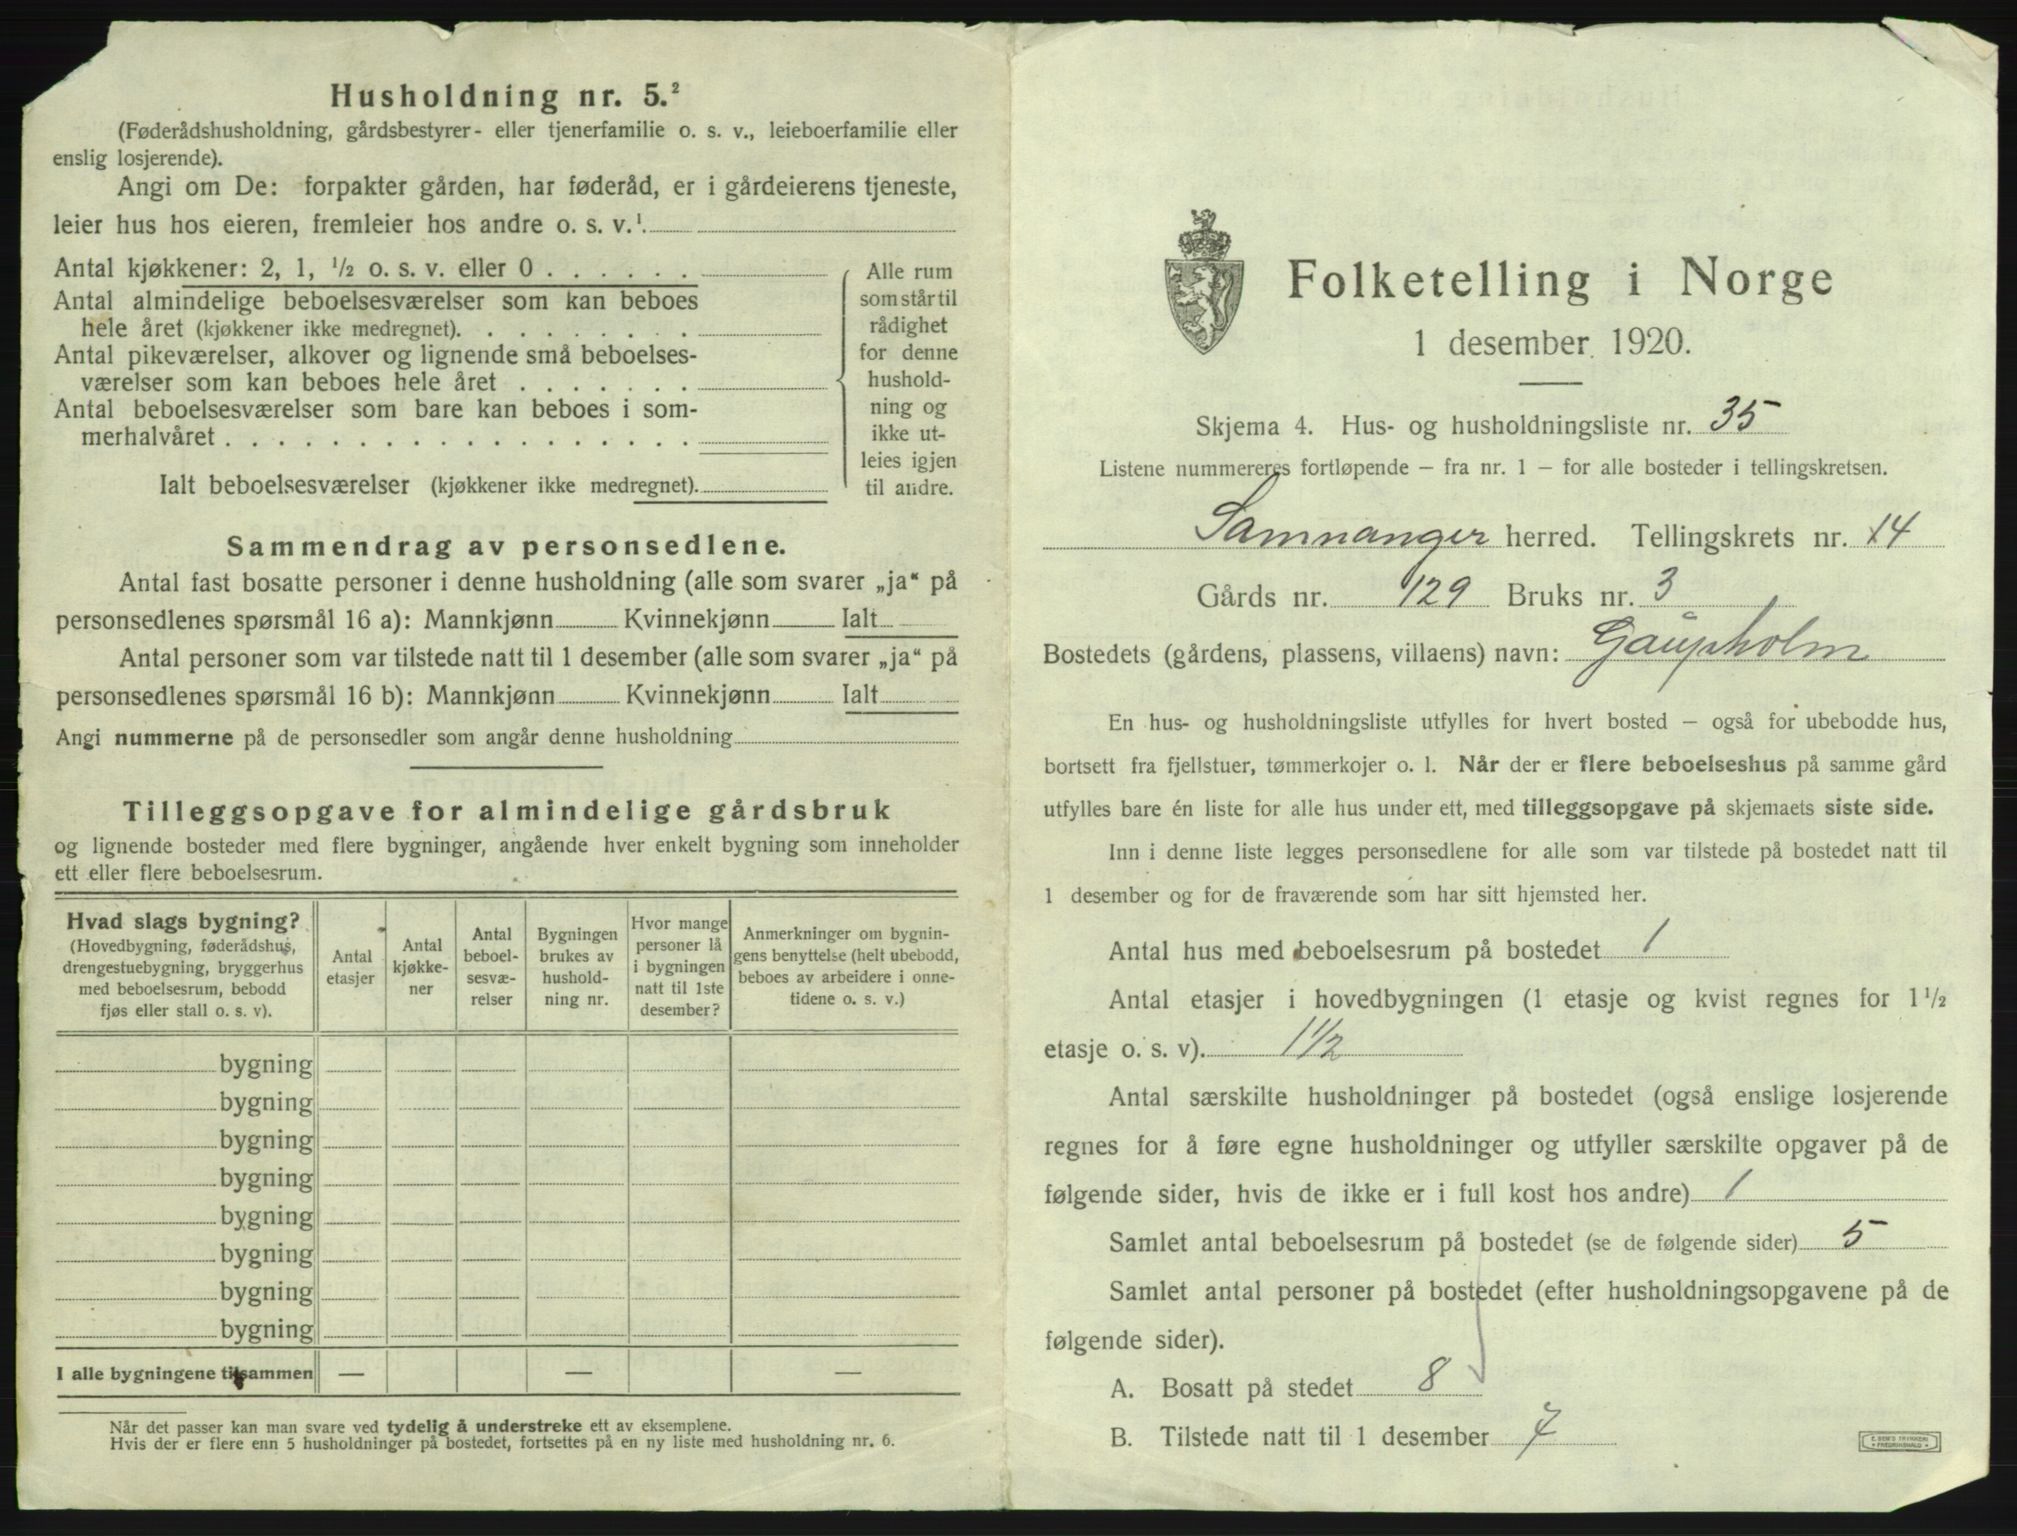 Husholdning nr. 5.²
(Føderådshusholdning, gårdsbestyrer- eller tjenerfamilie o. s. v., leieboerfamilie eller
enslig losjerende).
Angi om De: forpakter gården, har føderåd, er i gårdeierens tjeneste,
leier hus hos eieren, fremleier hos andre o. s. v.¹.
Antal kjøkkener: 2, 1, ½ o. s. v. eller 0 . . . . . .
Antal almindelige beboelsesværelser som kan beboes
hele året (kjøkkener ikke medregnet). . . . . . . . .
Antal pikeværelser, alkover og lignende små beboelses-
værelser som kan beboes hele året . . . . . . .
Antal beboelsesværelser som bare kan beboes i som-
merhalvåret . . . . . . . . . . . . . . . . . .
Ialt beboelsesværelser (kjøkkener ikke medregnet).
Alle rum
som står til
rådighet
for denne
hushold-
ning og
ikke ut-
leies igjen
til andre.
Sammendrag av personsedlene.
Antal fast bosatte personer i denne husholdning (alle som svarer „ja“ på
personsedlenes spørsmål 16 a): Mannkjønn Kvinnekjønn Ialt
Antal personer som var tilstede natt til 1 desember (alle som svarer „ja“ på
personsedlenes spørsmål 16 b): Mannkjønn Kvinnekjønn Ialt
Angi nummerne på de personsedler som angår denne husholdning
Tilleggsopgave for almindelige gårdsbruk
og lignende bosteder med flere bygninger, angående hver enkelt bygning som inneholder
ett eller flere beboelsesrum.
Hvad slags bygning?
(Hovedbygning, føderådshus,
drengestuebygning, bryggerhus
med beboelsesrum, bebodd
fjøs eller stall o. s. v).
Antal
etasjer
Antal
kjøkke-
ner
Antal
beboel-
sesvæ-
relser
Bygningen
brukes av
hushold-
ning nr.
Hvor mange
personer lå
i bygningen
natt til 1ste
desember?
Anmerkninger om bygnin-
gens benyttelse (helt ubebodd,
beboes av arbeidere i onne-
tidene o. s. v.)
bygning
bygning
bygning
bygning
bygning
bygning
bygning
bygning
I alle bygningene tilsammen — — —
Når det passer kan man svare ved tydelig å understreke ett av eksemplene.
Hvis der er flere enn 5 husholdninger på bostedet, fortsettes på en ny liste med husholdning nr. 6.
Folketelling i Norge
1 desember 1920.
Skjema 4. Hus- og husholdningsliste nr. 35
Listene nummereres fortløpende – fra nr. 1 – for alle bosteder i tellingskretsen.
Samnanger herred. Tellingskrets nr. 14
Gårds nr. 129 Bruks nr. 3
Bostedets (gårdens, plassens, villaens) navn: Gaupholm
En hus- og husholdningsliste utfylles for hvert bosted – også for ubebodde hus,
bortsett fra fjellstuer, tømmerkojer o. l. Når der er flere beboelseshus på samme gård
utfylles bare én liste for alle hus under ett, med tilleggsopgave på skjemaets siste side.
Inn i denne liste legges personsedlene for alle som var tilstede på bostedet natt til
1 desember og for de fraværende som har sitt hjemsted her.
Antal hus med beboelsesrum på bostedet 1
Antal etasjer i hovedbygningen (1 etasje og kvist regnes for 1½
etasje o. s. v). 1½
Antal særskilte husholdninger på bostedet (også enslige losjerende
regnes for å føre egne husholdninger og utfyller særskilte opgaver på de
følgende sider, hvis de ikke er i full kost hos andre) 1
Samlet antal beboelsesrum på bostedet (se de følgende sider) 5
Samlet antal personer på bostedet (efter husholdningsopgavene på de
følgende sider).
A. Bosatt på stedet 8
B. Tilstede natt til 1 desember 7
E. SEM'S TRYKKERI
FREDRIKSHALD